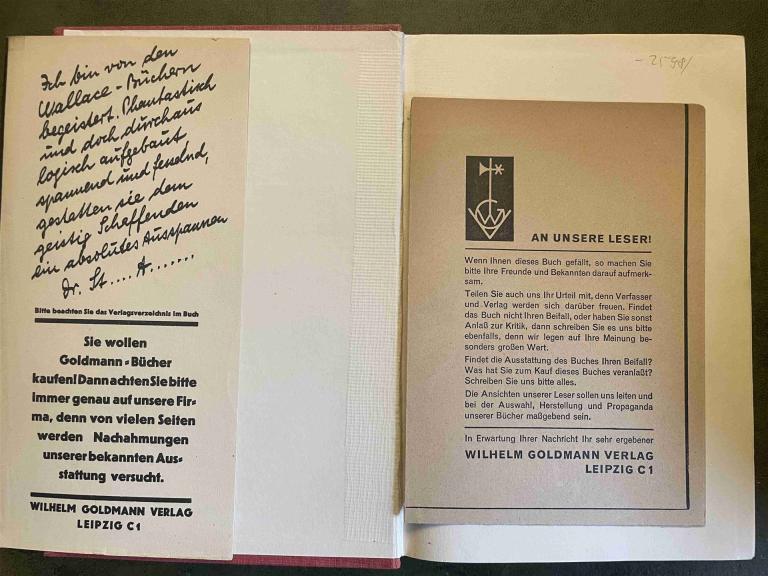 Ich bin von den
Wallace-Büchern
begeistert. Phantastisch
und doch durchaus
logisch aufgebaut
spannend und fesselnd,
gestatten sie dem
geistig Schaffenden
ein absolutes Ausspannen
Dr. St.... A.......
Bitte beachten Sie das Verlagsverzeichnis im Buch
Sie wollen
Goldmann-Bücher
kaufen! Dann achten Sie bitte
immer genau auf unsere Fir-
ma, denn von vielen Seiten
werden Nachahmungen
unserer bekannten Aus-
stattung versucht.
WILHELM GOLDMANN VERLAG
LEIPZIG C 1
AN UNSERE LESER!
Wenn Ihnen dieses Buch gefällt, so machen Sie
bitte Ihre Freunde und Bekannten darauf aufmerk-
sam.
Teilen Sie auch uns Ihr Urteil mit, denn Verfasser
und Verlag werden sich darüber freuen. Findet
das Buch nicht Ihren Beifall, oder haben Sie sonst
Anlaß zur Kritik, dann schreiben Sie es uns bitte
ebenfalls, denn wir legen auf Ihre Meinung be-
sonders großen Wert.
Findet die Ausstattung des Buches Ihren Beifall?
Was hat Sie zum Kauf dieses Buches veranlaßt?
Schreiben Sie uns bitte alles.
Die Ansichten unserer Leser sollen uns leiten und
bei der Auswahl, Herstellung und Propaganda
unserer Bücher maßgebend sein.
In Erwartung Ihrer Nachricht Ihr sehr ergebener
WILHELM GOLDMANN VERLAG
LEIPZIG C 1